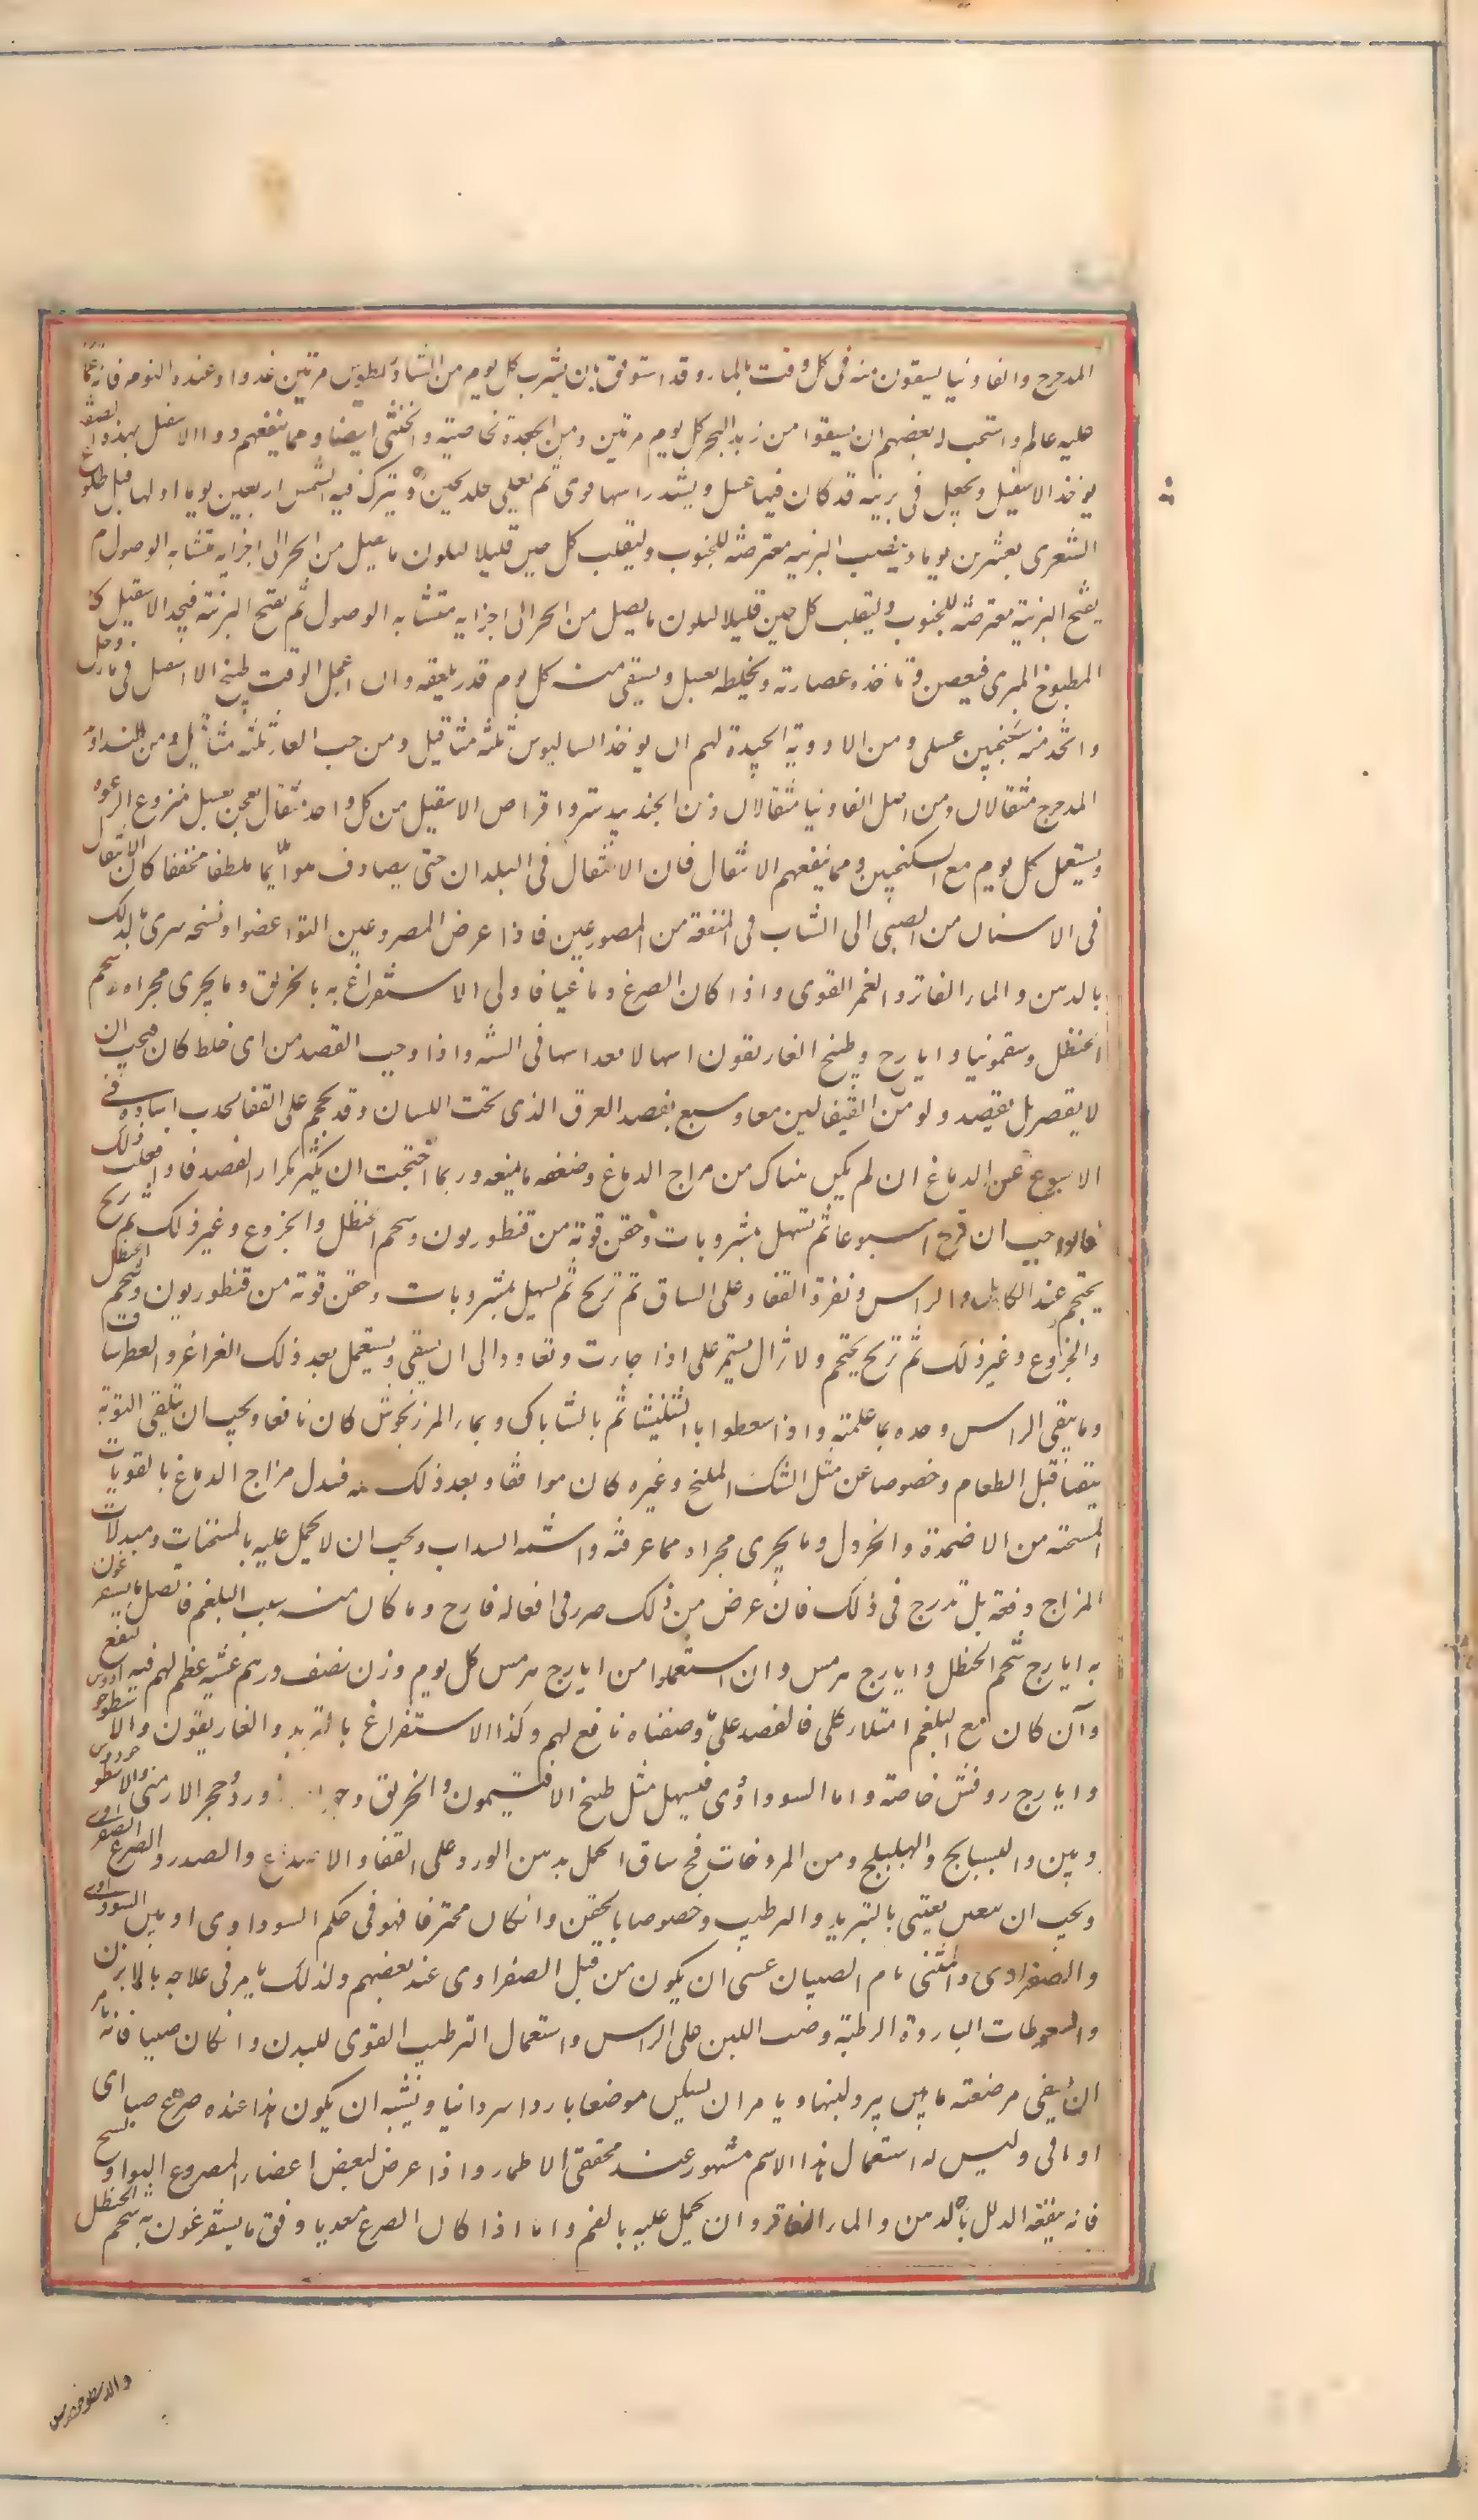 المدحرج والفاونيا يسقون منه فى كل وقت بالماء وقد استوفق بان يشرب كل يوم من الشاذيطوس مرتين غدوا وعند النوم فانه
عليه عالم واستحب له بعضهم ان يسقوا من زبد البحر كل يوم مرتين ومن الجعدة لخاصيته والخنثى ايضا ومما ينفعهم دوا الاسقيل بهذه
يوخذ الاسقيل ويجعل فى برنية قد كان فيها عسل ويشد راسها ثم يعلى جلد ويترك فيه الشمس اربعين يوما اولها قبل طلوع
الشعرى بعشرين يوما وينصب البرنية معترضة للجنوب وليقلب كل حين قليلا ليكون ما يصل من الحر الى اجزايه متشابه الوصول
يفتح البرنية معترضة للجنوب وليقلب كل حين قليلا ليكون ما يصل من الحر الى اجزايه متشابه الوصول ثم يفتح البرنية فيجد الاسقيل
المطبوخ المهرى فيعصر وتاخذ عصارته ويخلطه بعسل ويسقى منه كل يوم قدر ملعقه وان اعجل الوقت طبخ الاسقيل فى ماء وخل
واتخذ منه سكنجبين عسلى ومن الادوية الجيدة لهم ان يوخذ الساليوس ثلثه مثاقيل ومن حب الغار ثلثه مثاقيل ومن الزراوند
المدحرج مثقالان ومن اصل الفاونيا مثقالان ومن الجندبيدستر واقراص الاسقيل من كل واحد مثقال يعجن بعسل منزوع الرغوة
ويستعمل كل يوم مع السكنجبين ومما ينفعهم الانتقال فان الانتقال فى البلدان حتى يصادف هوا ملايما ملطفا مجففا كان الانتقال
فى الاسنان من الصبى الى الشاب فى المنفعة من المصروعين فاذا عرض للمصروعين التوا عضو او تشنجه سرى بذلك
بالدهن والماء الفاتر والغمر القوى واذا كان الصرع دماغيا فاولى الاستفراغ به بالخربق وما يجرى مجراه وشحم
الحنظل وسقمونيا وايارج وطبخ الغاريقون اسهالا بعد اسها فى السنه واذا وجب الفصد من اى خلط كان فيجب ان
لا يقصر بل يفصد ولو من القيفالين معا ويتبع بفصد العرق الذى تحت اللسان وقد يحجم على القفا لجذب المادة فى
الاسبوع عن الدماغ ان لم يكن هناك من مزاج الدماغ وضعفه ما يمنعه وربما احتجت ان يكثر تكرار الفصد فاذا فعلت ذلك
فالواجب ان تريح اسبوعا ثم تسهل بمشروبات وحقن قوية من قنطوريون وشحم الحنظل والخروع وغير ذلك ثم تريح
يحتجم عند الكاهل والراس ونقرة القفا وعلى الساق ثم تريح ثم يسهل بمشروبات وحقن قوية من قنطوريون وشحم الحنظل
والخروع وغير ذلك ثم تريح يحتجم ولا تزال تستمر على اذا جارت وتعاود الى ان ينقى ويستعمل بعد ذلك الغراغر والعطوسات
وما ينقى الراس وحده بما علمته واذا سعطوا بالشليثا ثم بالشاباك وبماء المرزنجوش كان نافعا ويجب ان تلقى النوبة
بنقا قبل الطعام وخصوصا عن مثل السمك المليح وغيره كان موافقا وبعد ذلك فبدل مزاج الدماغ بالمقويات
المسخنة من الاضمدة والخردل وما يجرى مجراه مما عرفته واشمه السداب ويجب ان لا يحمل عليه بالمسخنات ومبدلات
المزاج دفعة بل تدرج فى ذلك فان عرض من ذلك ضرر فى افعاله فارح وما كان منه بسبب البلغم فافضل ما يستفرغون
به ايارج شحم الحنظل وايارج هرمس وان استعملوا من ايارج هرمس كل يوم وزن نصف درهم عشية عظم لهم فيه النفع
وان كان مع البلغم امتلاء كلى فالفصد على وصفناه نافع لهم وكذا الاستفراغ بالتربد والغاريقون والاسطوخودوس
وايارج روفس خاصة واما السوداوى فيسهل مثل طبخ الافتيمون والخربق وحجر لازورد وحجر الارمنى والاسطوخودوس
وبين والبسبايج والهليلج ومن المروخات مخ ساق الجمل بدهن الورد على القفا والاصداغ والصدر والصرع الصفراوى
ويجب ان يعتنى بالتبريد والترطيب وخصوصا بالحقن وان كان محترفا فهو فى حكم السوداوى او بين السوداوى
والصفراوى والمسمى بام الصبيان عسى ان يكون من قبل الصفراوى عند بعضهم ولذلك يامر فى علاجه بالابزن
والسعوطات الباردة الرطبة وصب اللبن على الراس واستعمال الترطيب القوى للبدن وان كان صبيا فانه يامر
ان يسقى مرضعته ما يبرد لبنها ويامر ان يسكن موضعا باردا سردابيا ويشبه ان يكون هذا عنده صرع صباى
او مافى وليس له استعمال هذا الاسم مشهور عند محققى الاطباء واذا عرض لبعض اعضاء المصروع التوا وتشنج
فانه ينفعه الدلك بالدهن والماء الفاتر وان يحمل عليه بالغمز واما اذا كان الصرع معديا وفق ما يستفرغون به شحم الحنظل
والاسطوخودوس